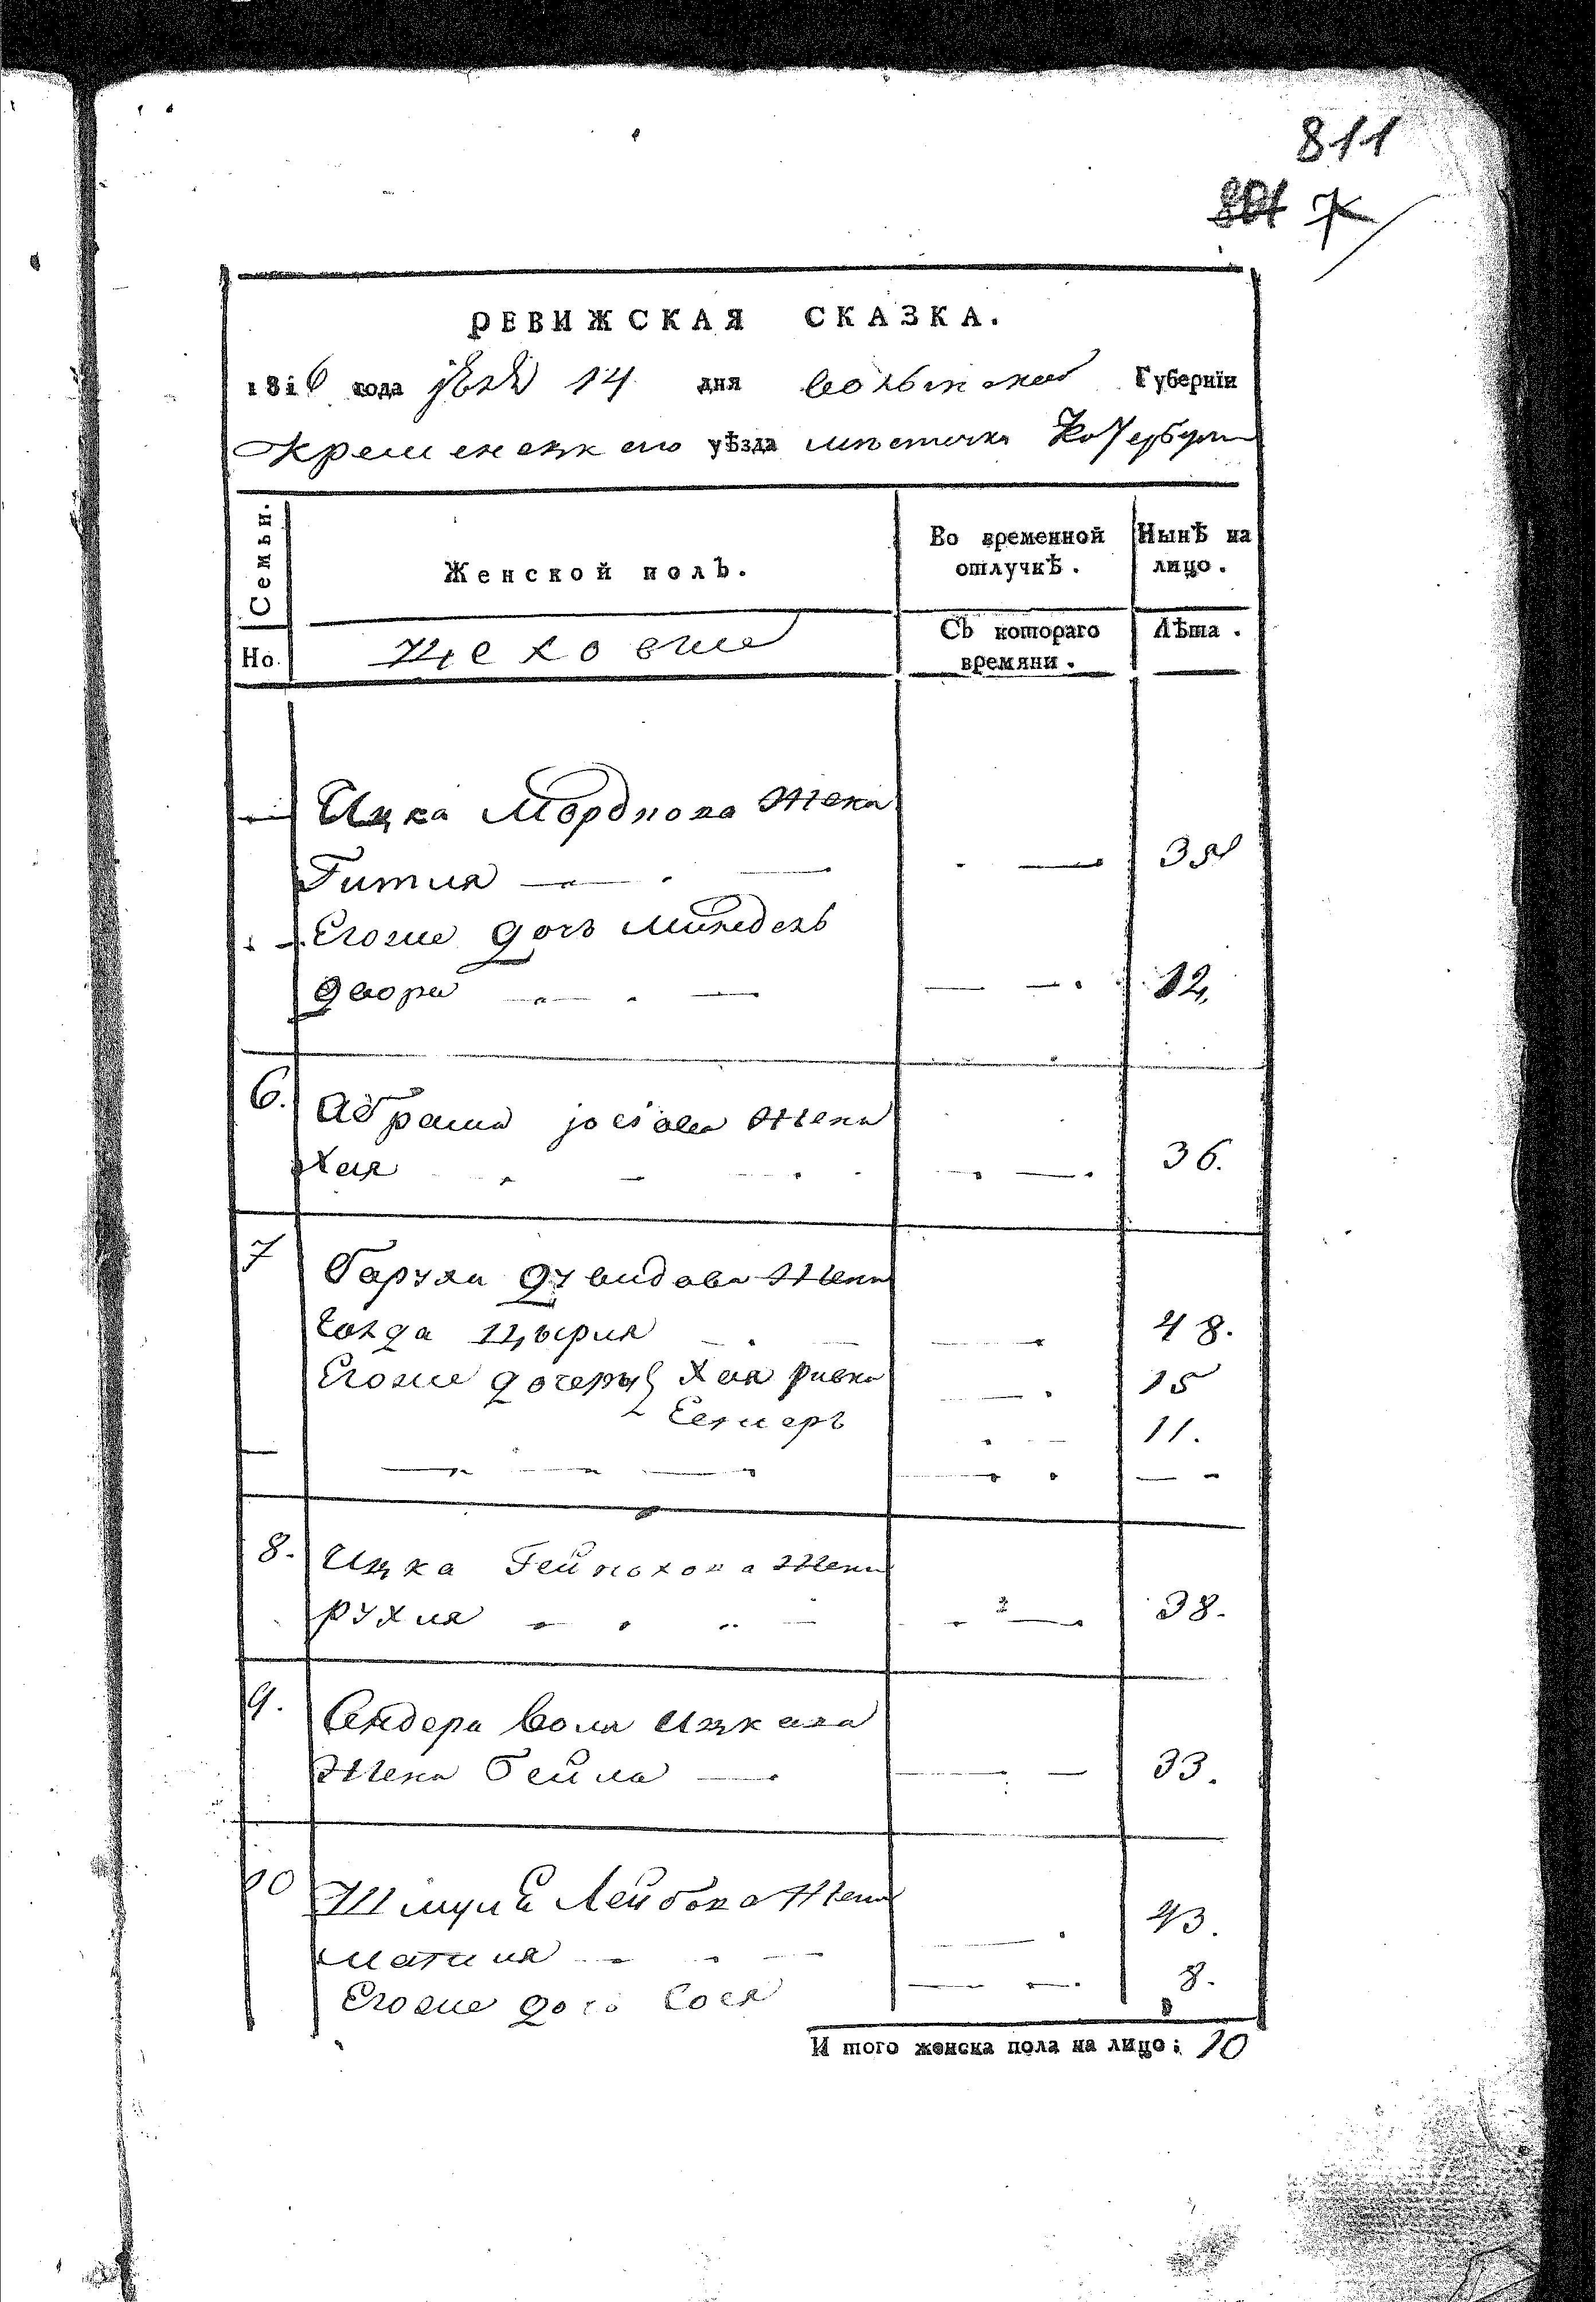 811
801 7
РЕВИЖСКАЯ СКАЗКА.
1816 года 14 дня Волынской Губернїи
Кременецкого уѣзда местечка
Семьи.
Женской полъ.
Во временной отлучкѣ.
Нынѣ на лицо.
Но.
Цеховые
Съ котораго времяни.
Лѣта.
Ицка Мордкова Жена
Гитля
Егоже дочь Миндель
двора 12,
6. Абрама Жена
Хая 36.
7 Баруха дувидова Жена
Голда Цырля 48.
Егоже дочеры Хая ривка 15
Естеръ 11.
8. Ицка Гейнохова Жена
рухля 38.
9. Сендера Вола Ицкова
Жена бейла 33.
10 Шмуля Лейбова Жена
43.
Егоже дочь Сося 8.
И того женска пола на лицо: 10